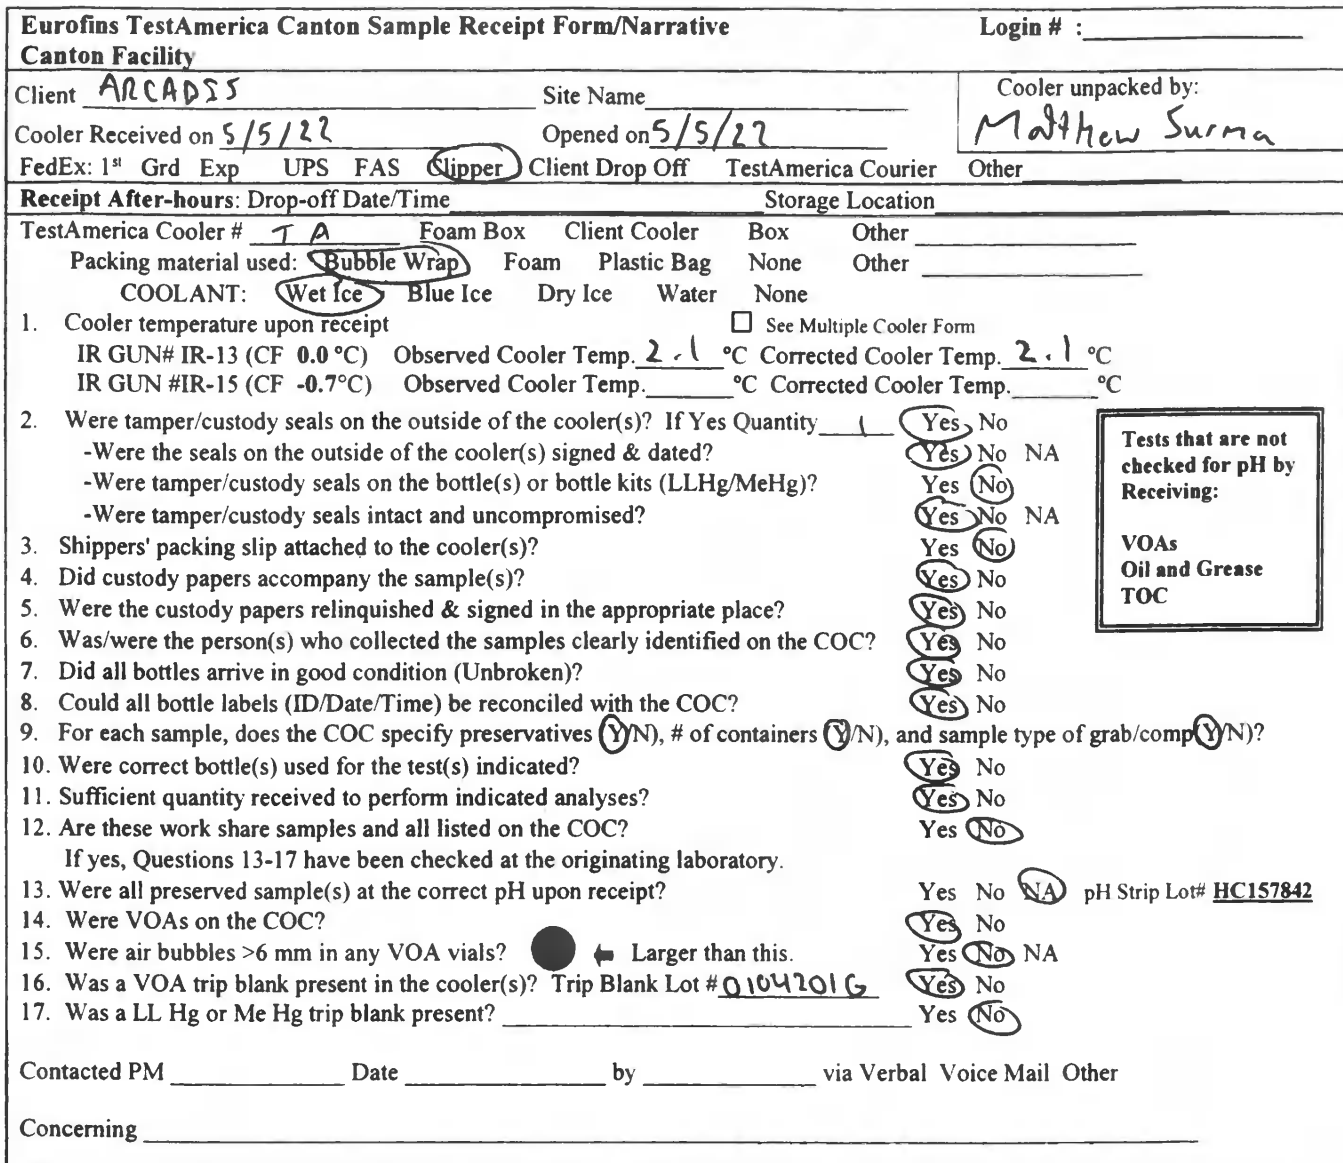 Eurofins TestAmerica Canton Sample Receipt Form/Narrative Login # :
Canton Facility
Client ARCADIS Site Name Cooler unpacked by:
Cooler Received on 5/5/22 Opened on 5/5/22 Matthew Surma
FedEx: 1st Grd Exp UPS FAS Clipper Client Drop Off TestAmerica Courier Other
Receipt After-hours: Drop-off Date/Time Storage Location
TestAmerica Cooler # TA Foam Box Client Cooler Box Other
Packing material used: Bubble Wrap Foam Plastic Bag None Other
COOLANT: Wet Ice Blue Ice Dry Ice Water None
1. Cooler temperature upon receipt ☐ See Multiple Cooler Form
IR GUN# IR-13 (CF 0.0 °C) Observed Cooler Temp. 2.1 °C Corrected Cooler Temp. 2.1 °C
IR GUN #IR-15 (CF -0.7°C) Observed Cooler Temp. °C Corrected Cooler Temp. °C
2. Were tamper/custody seals on the outside of the cooler(s)? If Yes Quantity 1 Yes No
-Were the seals on the outside of the cooler(s) signed & dated? Yes No NA
-Were tamper/custody seals on the bottle(s) or bottle kits (LLHg/MeHg)? Yes No
-Were tamper/custody seals intact and uncompromised? Yes No NA
3. Shippers' packing slip attached to the cooler(s)? Yes No
4. Did custody papers accompany the sample(s)? Yes No
5. Were the custody papers relinquished & signed in the appropriate place? Yes No
6. Was/were the person(s) who collected the samples clearly identified on the COC? Yes No
7. Did all bottles arrive in good condition (Unbroken)? Yes No
8. Could all bottle labels (ID/Date/Time) be reconciled with the COC? Yes No
Tests that are not
checked for pH by
Receiving:
VOAs
Oil and Grease
TOC
9. For each sample, does the COC specify preservatives (Y/N), # of containers (Y/N), and sample type of grab/comp(Y/N)?
10. Were correct bottle(s) used for the test(s) indicated? Yes No
11. Sufficient quantity received to perform indicated analyses? Yes No
12. Are these work share samples and all listed on the COC? Yes No
If yes, Questions 13-17 have been checked at the originating laboratory.
13. Were all preserved sample(s) at the correct pH upon receipt? Yes No NA pH Strip Lot# HC157842
14. Were VOAs on the COC? Yes No
15. Were air bubbles >6 mm in any VOA vials? Larger than this. Yes No NA
16. Was a VOA trip blank present in the cooler(s)? Trip Blank Lot # 0104201G Yes No
17. Was a LL Hg or Me Hg trip blank present? Yes No
Contacted PM Date by via Verbal Voice Mail Other
Concerning